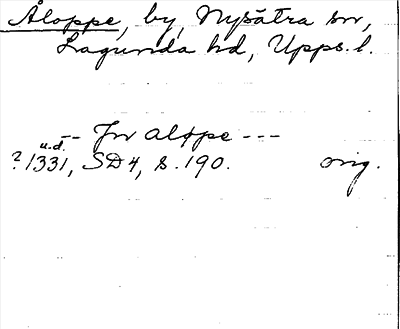 Åloppe, by, Nysätra sn,
Lagunda hd, Upps. l.
-- Jn aloppe ---
u.d.
? 1331, SD 4, s. 190. orig.